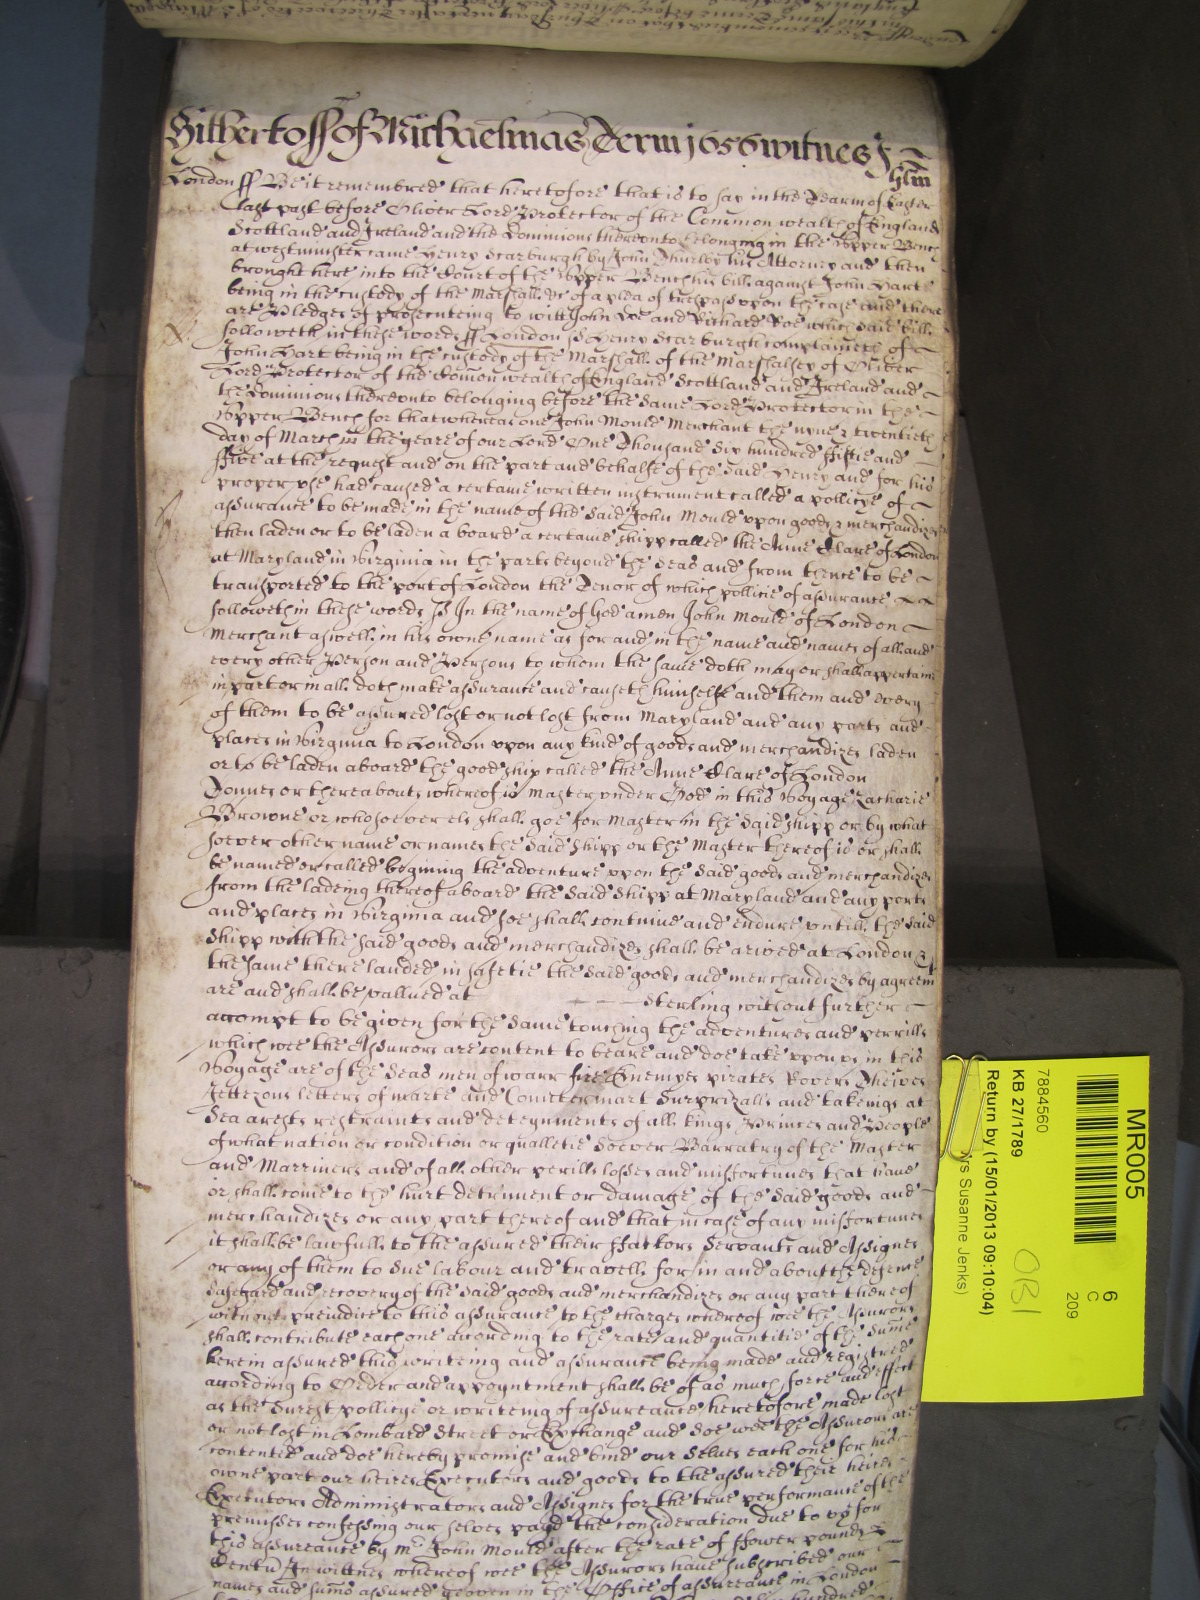 Hitherto ss of Michaelmas Term 1656 witnes J
Glin
London ss Be it remembred that heretofore that is to say in the Tearm of Easter
last past before Oliver Lord Protector of the Common wealth of England
Scottland and Ireland and the Dominions thereonto belonging in the Upper Bench
at westminster came Henry Scarburgh by John Thurley his Attorney and then
brought here into the Court of the Upper Bench his bill against John Hart
being in the custody of the Marshall &c of a plea of trespas upon the case and there
are Pledges of prosecuteing to witt John Doe and Richard Roe which said bill
followeth in these words ss London ss Henry Scarburgh complaineth of
John Hart being in the custody of the Marshall of the Marshalsey of Oliver
Lord Protector of the Comon wealth of England Scottland and Ireland and
the Dominions thereonto belonging before the same Lord Protector in the
Upper Bench for that whereas one John Mould Merchant the nyne & twentieth
day of March in the yeare of our Lord One Thousand Six hundred Fiftie and
Five at the request and on the part and behalfe of the said Henry and for his
proper vse had caused a certaine written instrument called a pollicye of
assurance to be made in the name of the said John Mould vpon goods & merchandizes
then laden or to be laden a board a certaine shipp called the Anne Clare of London
at Maryland in Virginia in the parts beyond the Seas and from thence to be
transported to the port of London the Tenor of which pollicie of assurance
followeth in these words ss In the name of God amen John Mould of London
Merchant aswell in his owne name as for and in the name and names of all and
every other Person and Persons to whom the same doth may or shall appertaine
in part or in all doth make assurance and causeth himselfe and them and every
of them to be assured lost or not lost from Maryland and any parts and
places in Virginia to London vpon any kind of goods and merchandizes laden
or to be laden aboard the good ship called the Anne Clare of London
Tonnes or thereabouts whereof is Master vnder God in this Voyage Zacharie
Browne or whosoever els shall goe for Master in the said shipp or by what
soever other name or names the said Shipp or the Master thereof is or shall
be named or called begining the adventure vpon the said goods and merchandizes
from the ladeing thereof aboard the said Shipp at Maryland and any ports
and places in Virginia and soe shall continue and endure vntill the said
Shipp with the said goods and merchandizes shall be arived at London &
the same there landed in safetie the said goods and merchandizes by agreemt
are and shall be vallued at sterling without further
accompt to be given for the same touching the adventures and perrills
which wee the Assurors are content to beare and doe take vpon vs in this
Voyage are of the Seas men of warr fire Enemyes pirates Rovers Theives
Jettezons letters of marte and Countermart Surprizalls and takeings at
Sea arests restraints and deteynments of all kings Princes and People
of what nation or condition or qualletie soever Barratry of the Master
and Marriners and of all other perills losses and misfortunes that have
or shall come to the hurt detriment or damage of the said goods and
merchandizes or any part thereof and that in case of any misfortunes
it shall be lawfull to the assured their Factors Servants and Assignes
or any of them to sue labour and travell for in and about the defence
safegard and recovery of the said goods and merchandizes or any part thereof
without prejudice to this assurance to the charges whereof wee the Assurors
shall contribute each one according to the rate and quantitie of the sume
herein assured this writeing and assurance being made and registred
according to Order and appoyntment shall be of as much force and effect
as the surest pollicye or writeing of assureance heretofore made lost
or not lost in Lombard Street or Exchange and soe wee the Assurors are
contented and doe hereby promise and bind our selves each one for his
owne part our heires Executors and goods to the assured their heires
Executors Administrators and Assignes for the true performance of the
premisses confessing our selves payd the consideration due to vs for
this assureance by mr John Mould after the rate of Fower pounds
Centu In wittnes whereof wee the Assurors have subscribed our
names and sums assured geoven in the Office of assureance in London
MR005
6
C
209
7884560
KB 27/1789
Return by (15/01/2013 09:10:04)
rs Susanne Jenks)